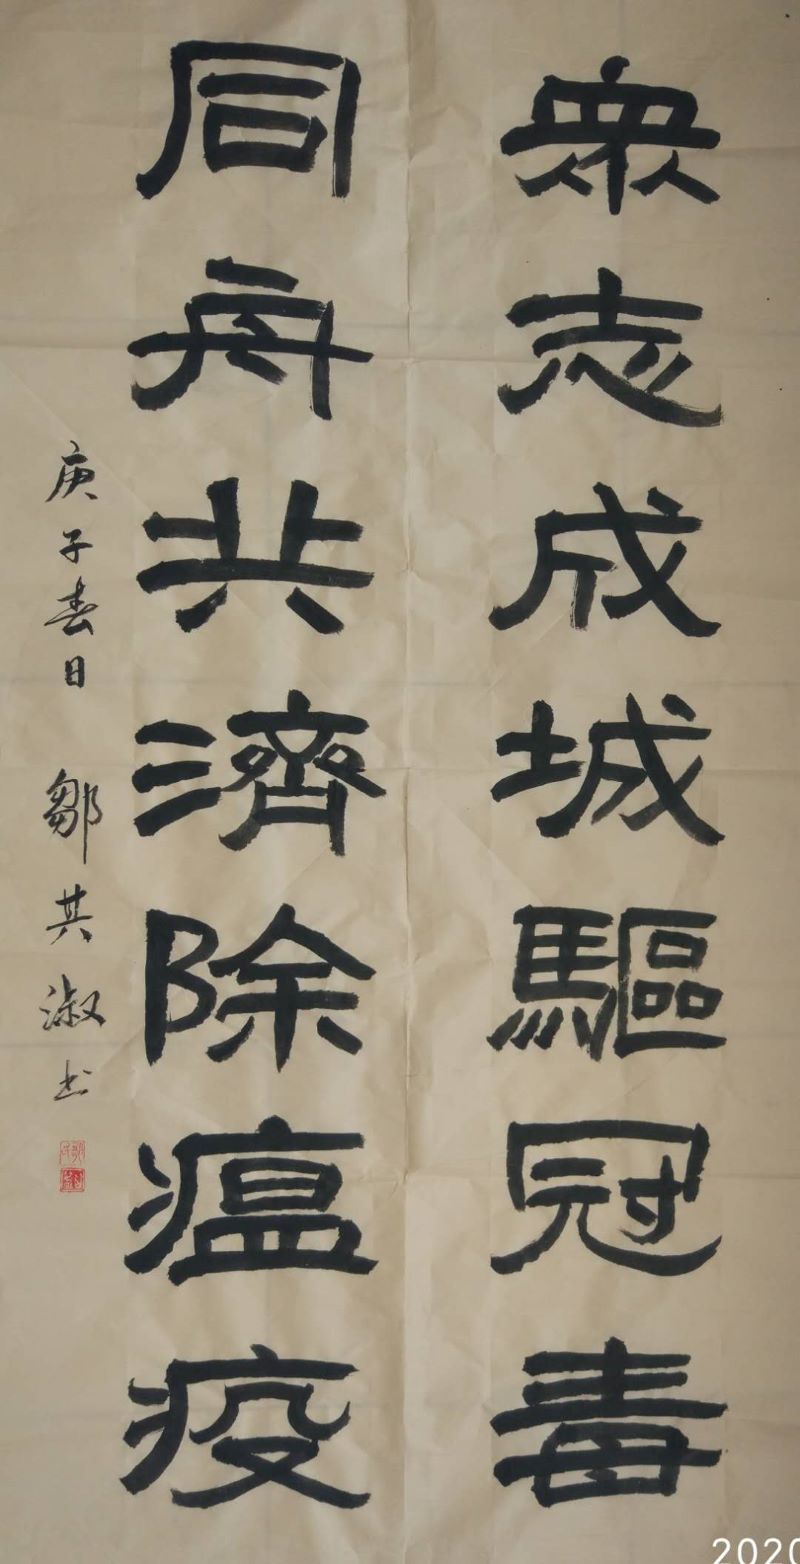 眾志成城驅冠毒
同舟共濟除瘟疫
庚子春日 鄒其淑书
2020